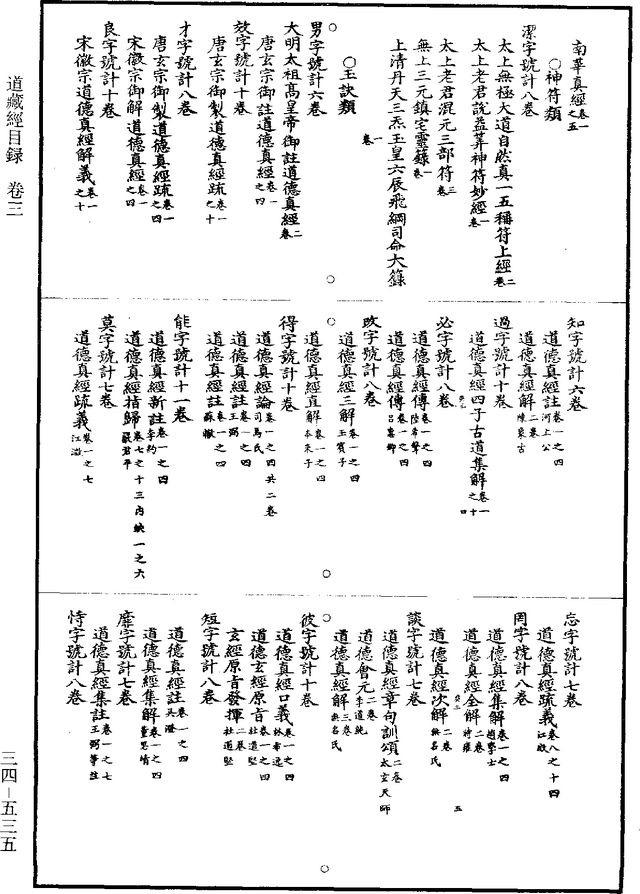 道藏經目録 卷三
三四-五三五
南華真經卷一之五
○神符類
潔字號計八卷
太上無極大道自然真一五稱符上經二卷
太上老君說益筭神符妙經一卷
太上老君混元三部符三卷
無上三元鎮宅靈籙一卷
上清丹天三炁玉皇六辰飛綱司命大籙
一卷
○玉訣類
男字號計六卷
大明太祖高皇帝御註道德真經二卷
唐玄宗御註道德真經卷一之四
效字號計十卷
唐玄宗御製道德真經疏卷一之十
才字號計八卷
唐玄宗御製道德真經疏卷一之四
宋徽宗御解道德真經卷一之四
良字號計十卷
宋徽宗道德真經解義卷一之十
知字號計六卷
道德真經註卷一之四河上公
道德真經解二卷陳象古
過字號計十卷
道德真經四子古道集解卷一之十
必字號計八卷
道德真經傳卷一之四陸希聲
道德真經傳卷一之四吕惠卿
改字號計八卷
道德真經三解卷一之四玉賓子
道德真經直解卷一之四本來子
得字號計十卷
道德真經論卷一之四共二卷司馬氏
道德真經註卷一之四王弼
道德真經註卷一之四蘇轍
能字號計十一卷
道德真經新註卷一之四李約
道德真經指歸卷七之十三内缺一之六嚴君平
莫字號計七卷
道德真經疏義卷一之七江澂
忘字號計七卷
道德真經疏義卷八之十四江澂
罔字號計八卷
道德真經集解卷一之四趙學士
道德真經全解二卷時雍
道德真經次解二卷無名氏
談字號計七卷
道德真經章句訓頌二卷太玄天師
道德會元二卷李道純
道德真經解三卷無名氏
彼字號計十卷
道德真經口義卷一之四林希逸
道德玄經原旨卷一之四杜道堅
玄經原旨發揮二卷杜道堅
短字號計八卷
道德真經註卷一之四吴澄
道德真經集解卷一之四董思靖
靡字號計七卷
道德真經集註卷一之七王弼等註
恃字號計八卷